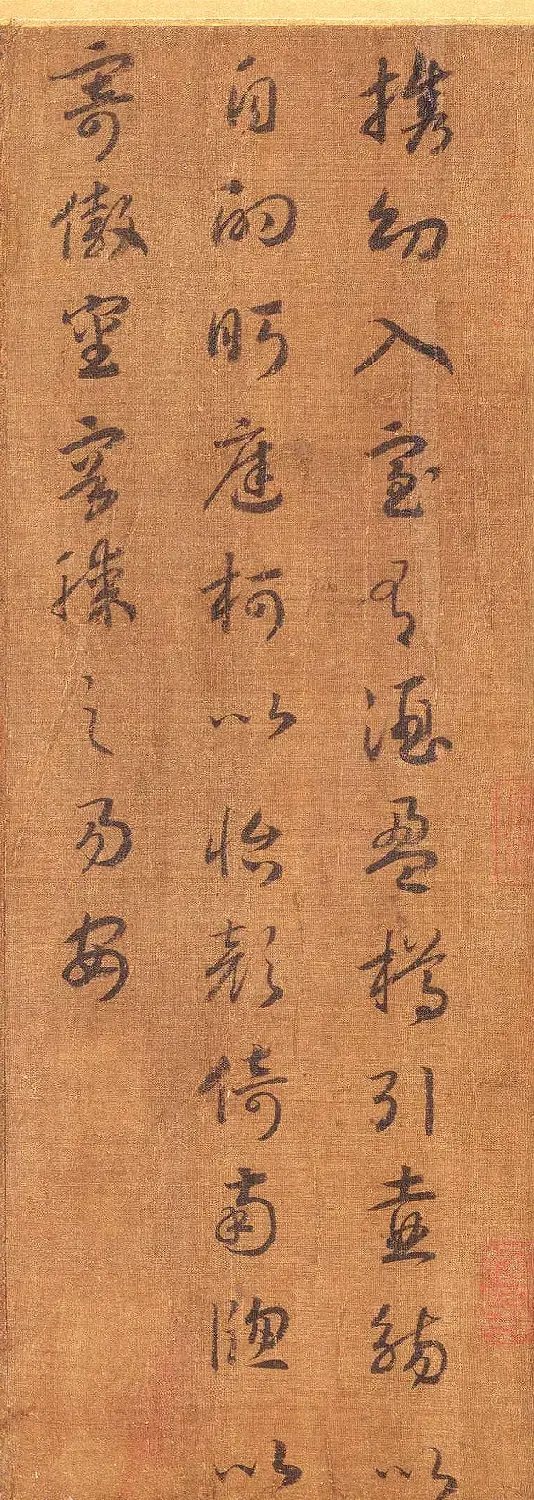 携幼入室有酒盈樽引壶觞以
自酌眄庭柯以怡颜倚南牕以
寄傲审容膝之易安